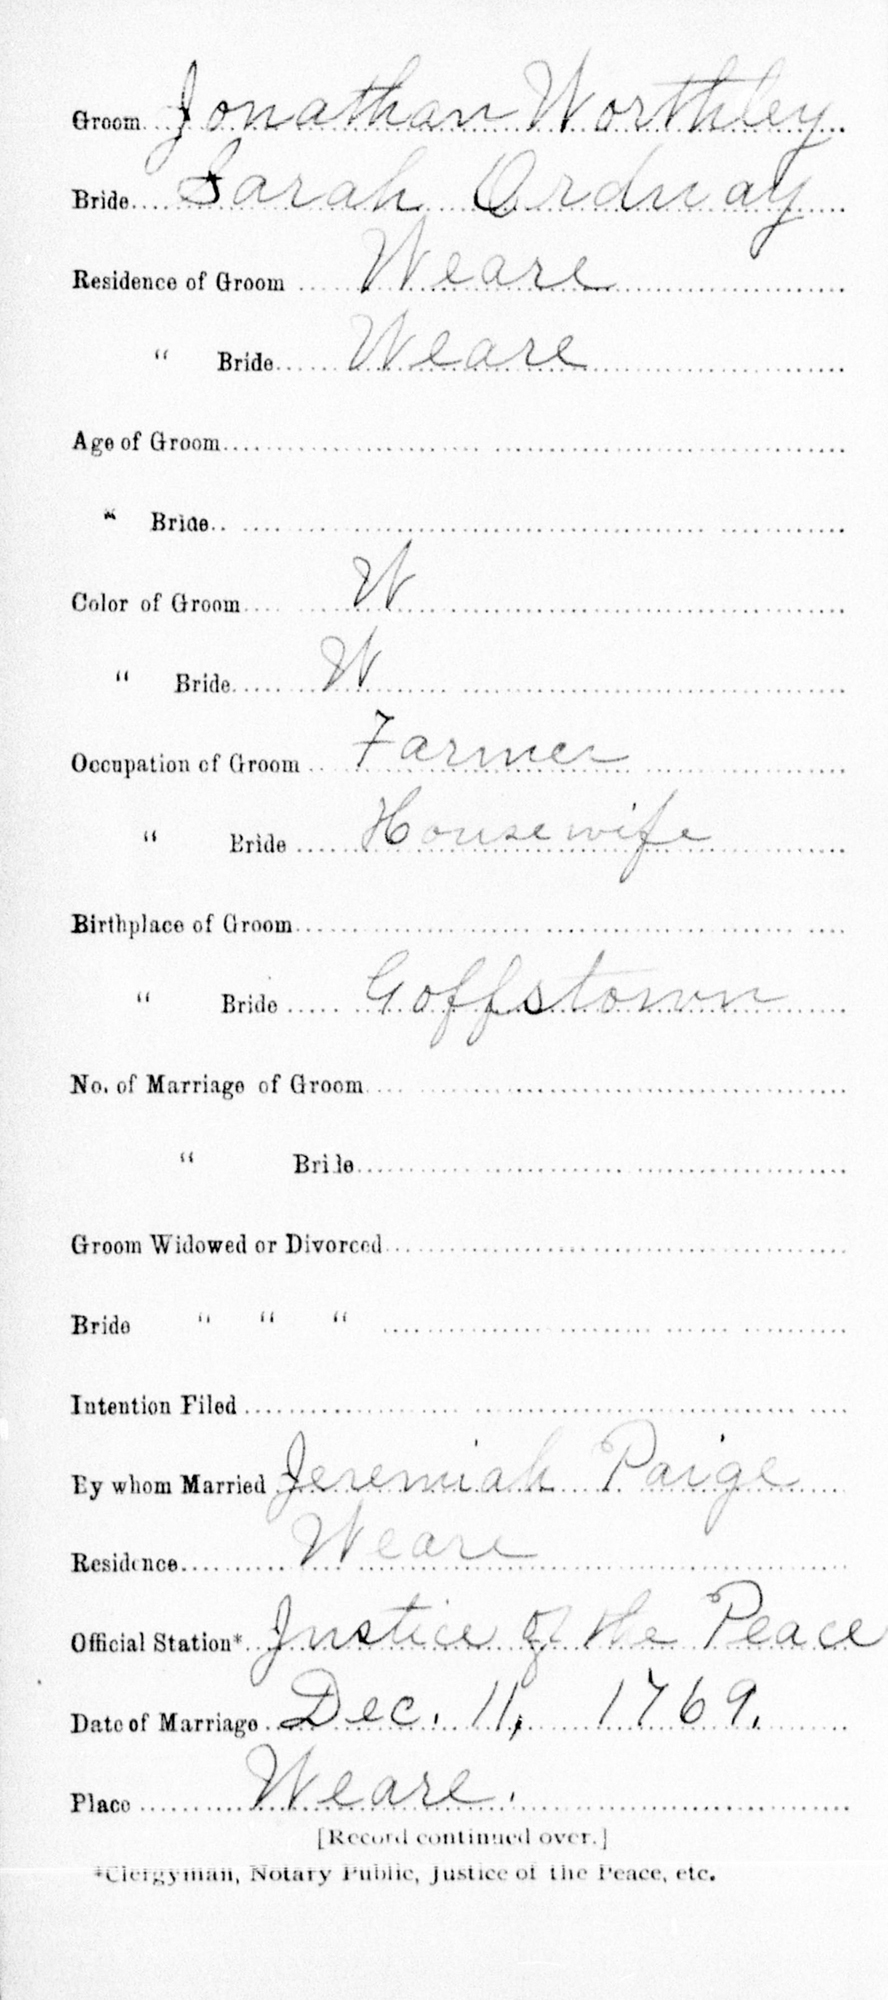 Groom Jonathan Worthley
Bride Sarah Ordway
Residence of Groom Weare
" Bride Weare
Age of Groom
" Bride
Color of Groom W
" Bride W
Occupation of Groom Farmer
" Bride Housewife
Birthplace of Groom
" Bride Goffstown
No. of Marriage of Groom
" Bride
Groom Widowed or Divorced
Bride " " "
Intention Filed
By whom Married Jeremiah Paige
Residence Weare
Official Station* Justice of the Peace
Date of Marriage Dec. 11, 1769.
Place Weare.
[Record continued over.]
*Clergyman, Notary Public, Justice of the Peace, etc.